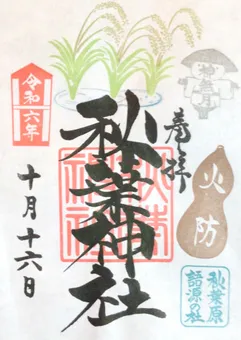 奉拝
神無月
火防
秋葉原
語源の社
秋葉神社
令和六年
十月十六日